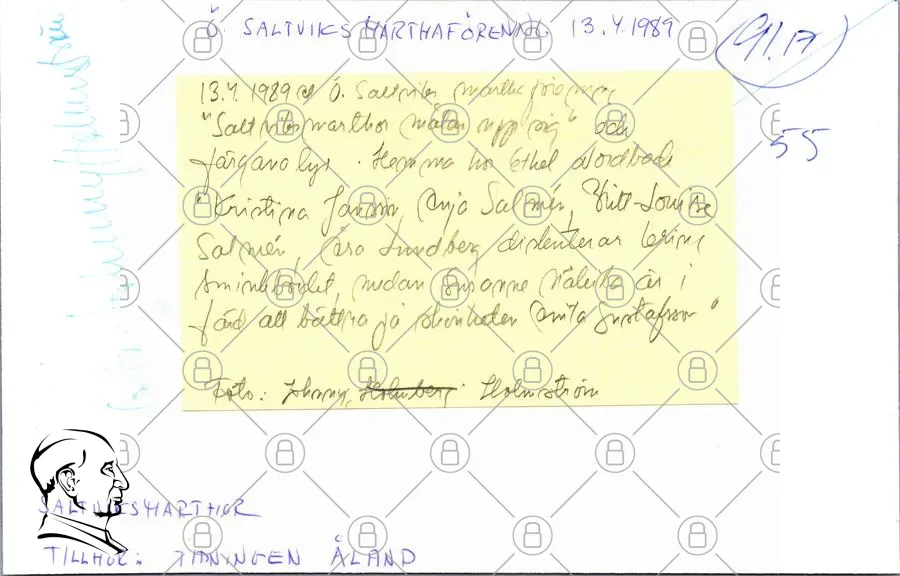 Ö. SALTVIKS MARTHAFÖRENING 13.4.1989
91.17
55
13.4.1989 Ö. Saltviks martha förening
"Saltviksmarthor målar upp sig" och
färganalys. Hemma hos Ethel Nordback
"Kristina Jansson, Anja Salmén, Britt-Louise
Salmén, Åsa Lundberg diskuterar kring
sminkbordet medan Susanne är i
färd att bättra på skönheten Anita Gustafsson"
Foto: Johnny Holmberg Holmström
foto: Johnny Holmström
SALTVIKSMARTHOR
TILLHÖR: TIDNINGEN ÅLAND